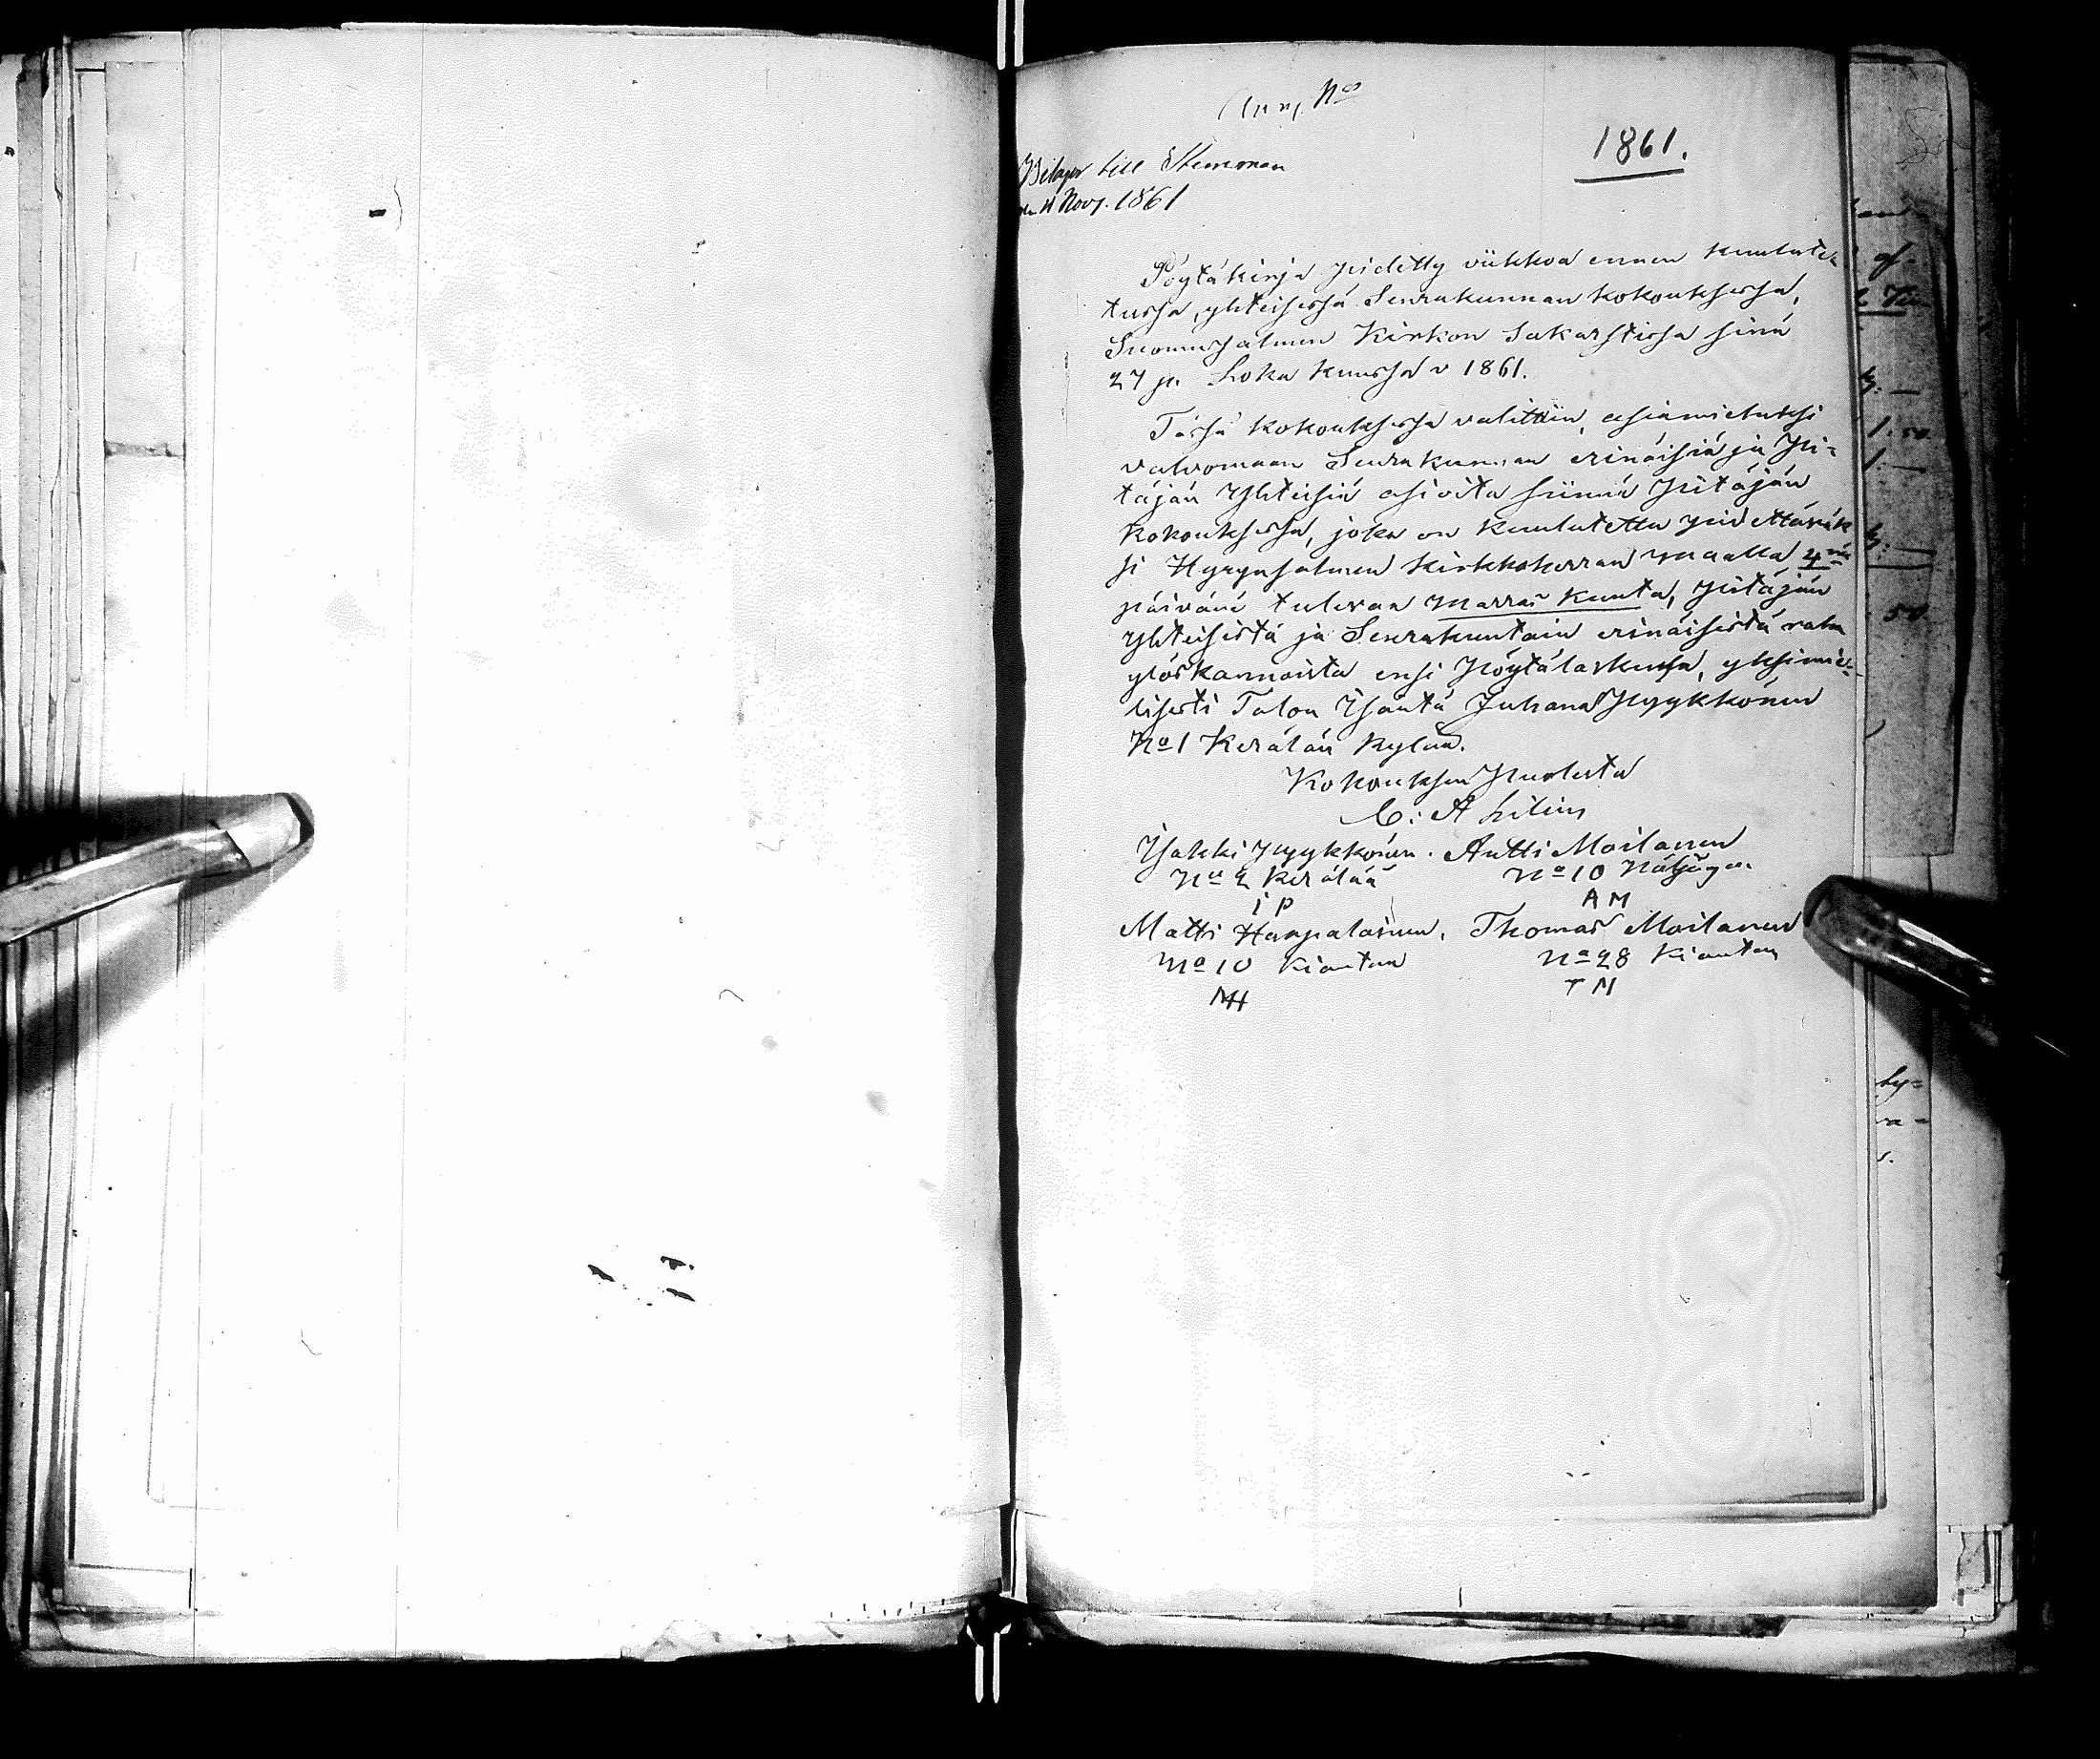 1861.
Bilagor till Stemman
den 4 Novg. 1861
Pöytäkirja pidetty viikkoa ennen kuulutetussa, yhteisessä Seurakunnan kokouksessa,
Suomussalmen Kirkon Sakarstissa sinä
27 p. Loka kuussa v 1861.
Tässä kokouksessa valittiin, asiamieheksi
valvomaan Seurakunnan erinäisiä ja Pi-
täjän Yhteisiä asioita siinä Pitäjän
kokouksessa, joka on kuulutettu pidettäväk
si Hyrynsalmen kirkkoherran maalla 4nä
päivänä tulevan Marras kuuta, Pitäjän
Yhteisistä ja Seurakuntain erinäisistä raha
ylöskannoista ensi Pöytälaskussa, yksimie-
lisesti Talon Isäntä Juhana Pyykkönen
No 1 Kerälän kylää.
Kokouksen Puolesta
C: A Lilius
Jakki Pyykkönen. Antti Moilanen
No 2 Kerälää No 10 Näljänge
I P A M
Matti Haapalainen, Thomas Moilanen
No 10 Kiantaa No 28 Kiantaa
MH T M